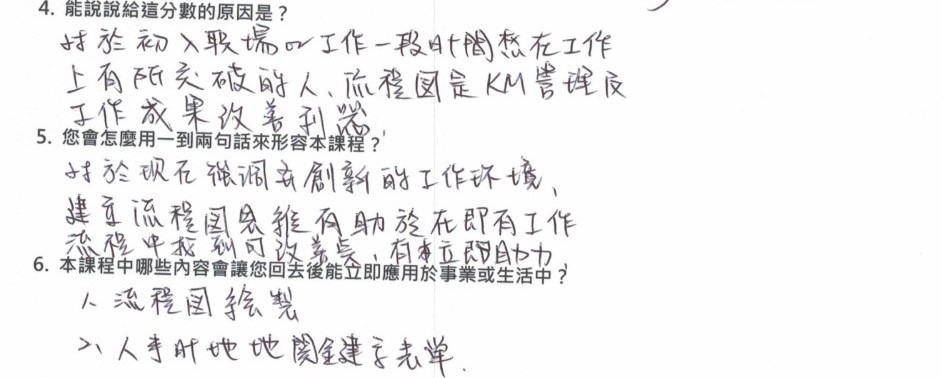 4. 能說說給這分數的原因是？
對於初入職場or工作一段時間想在工作
上有所突破的人、流程図是KM管理及
工作成果改善利器.
5. 您會怎麼用一到兩句話來形容本課程？
對於現在強調 創新的工作环境、
建立流程図思維有助於在即有工作
流程中找到可改善處、有 立即助力
6. 本課程中哪些內容會讓您回去後能立即應用於事業或生活中？
1、流程図絵製
2、人事時地 関鍵字表单.